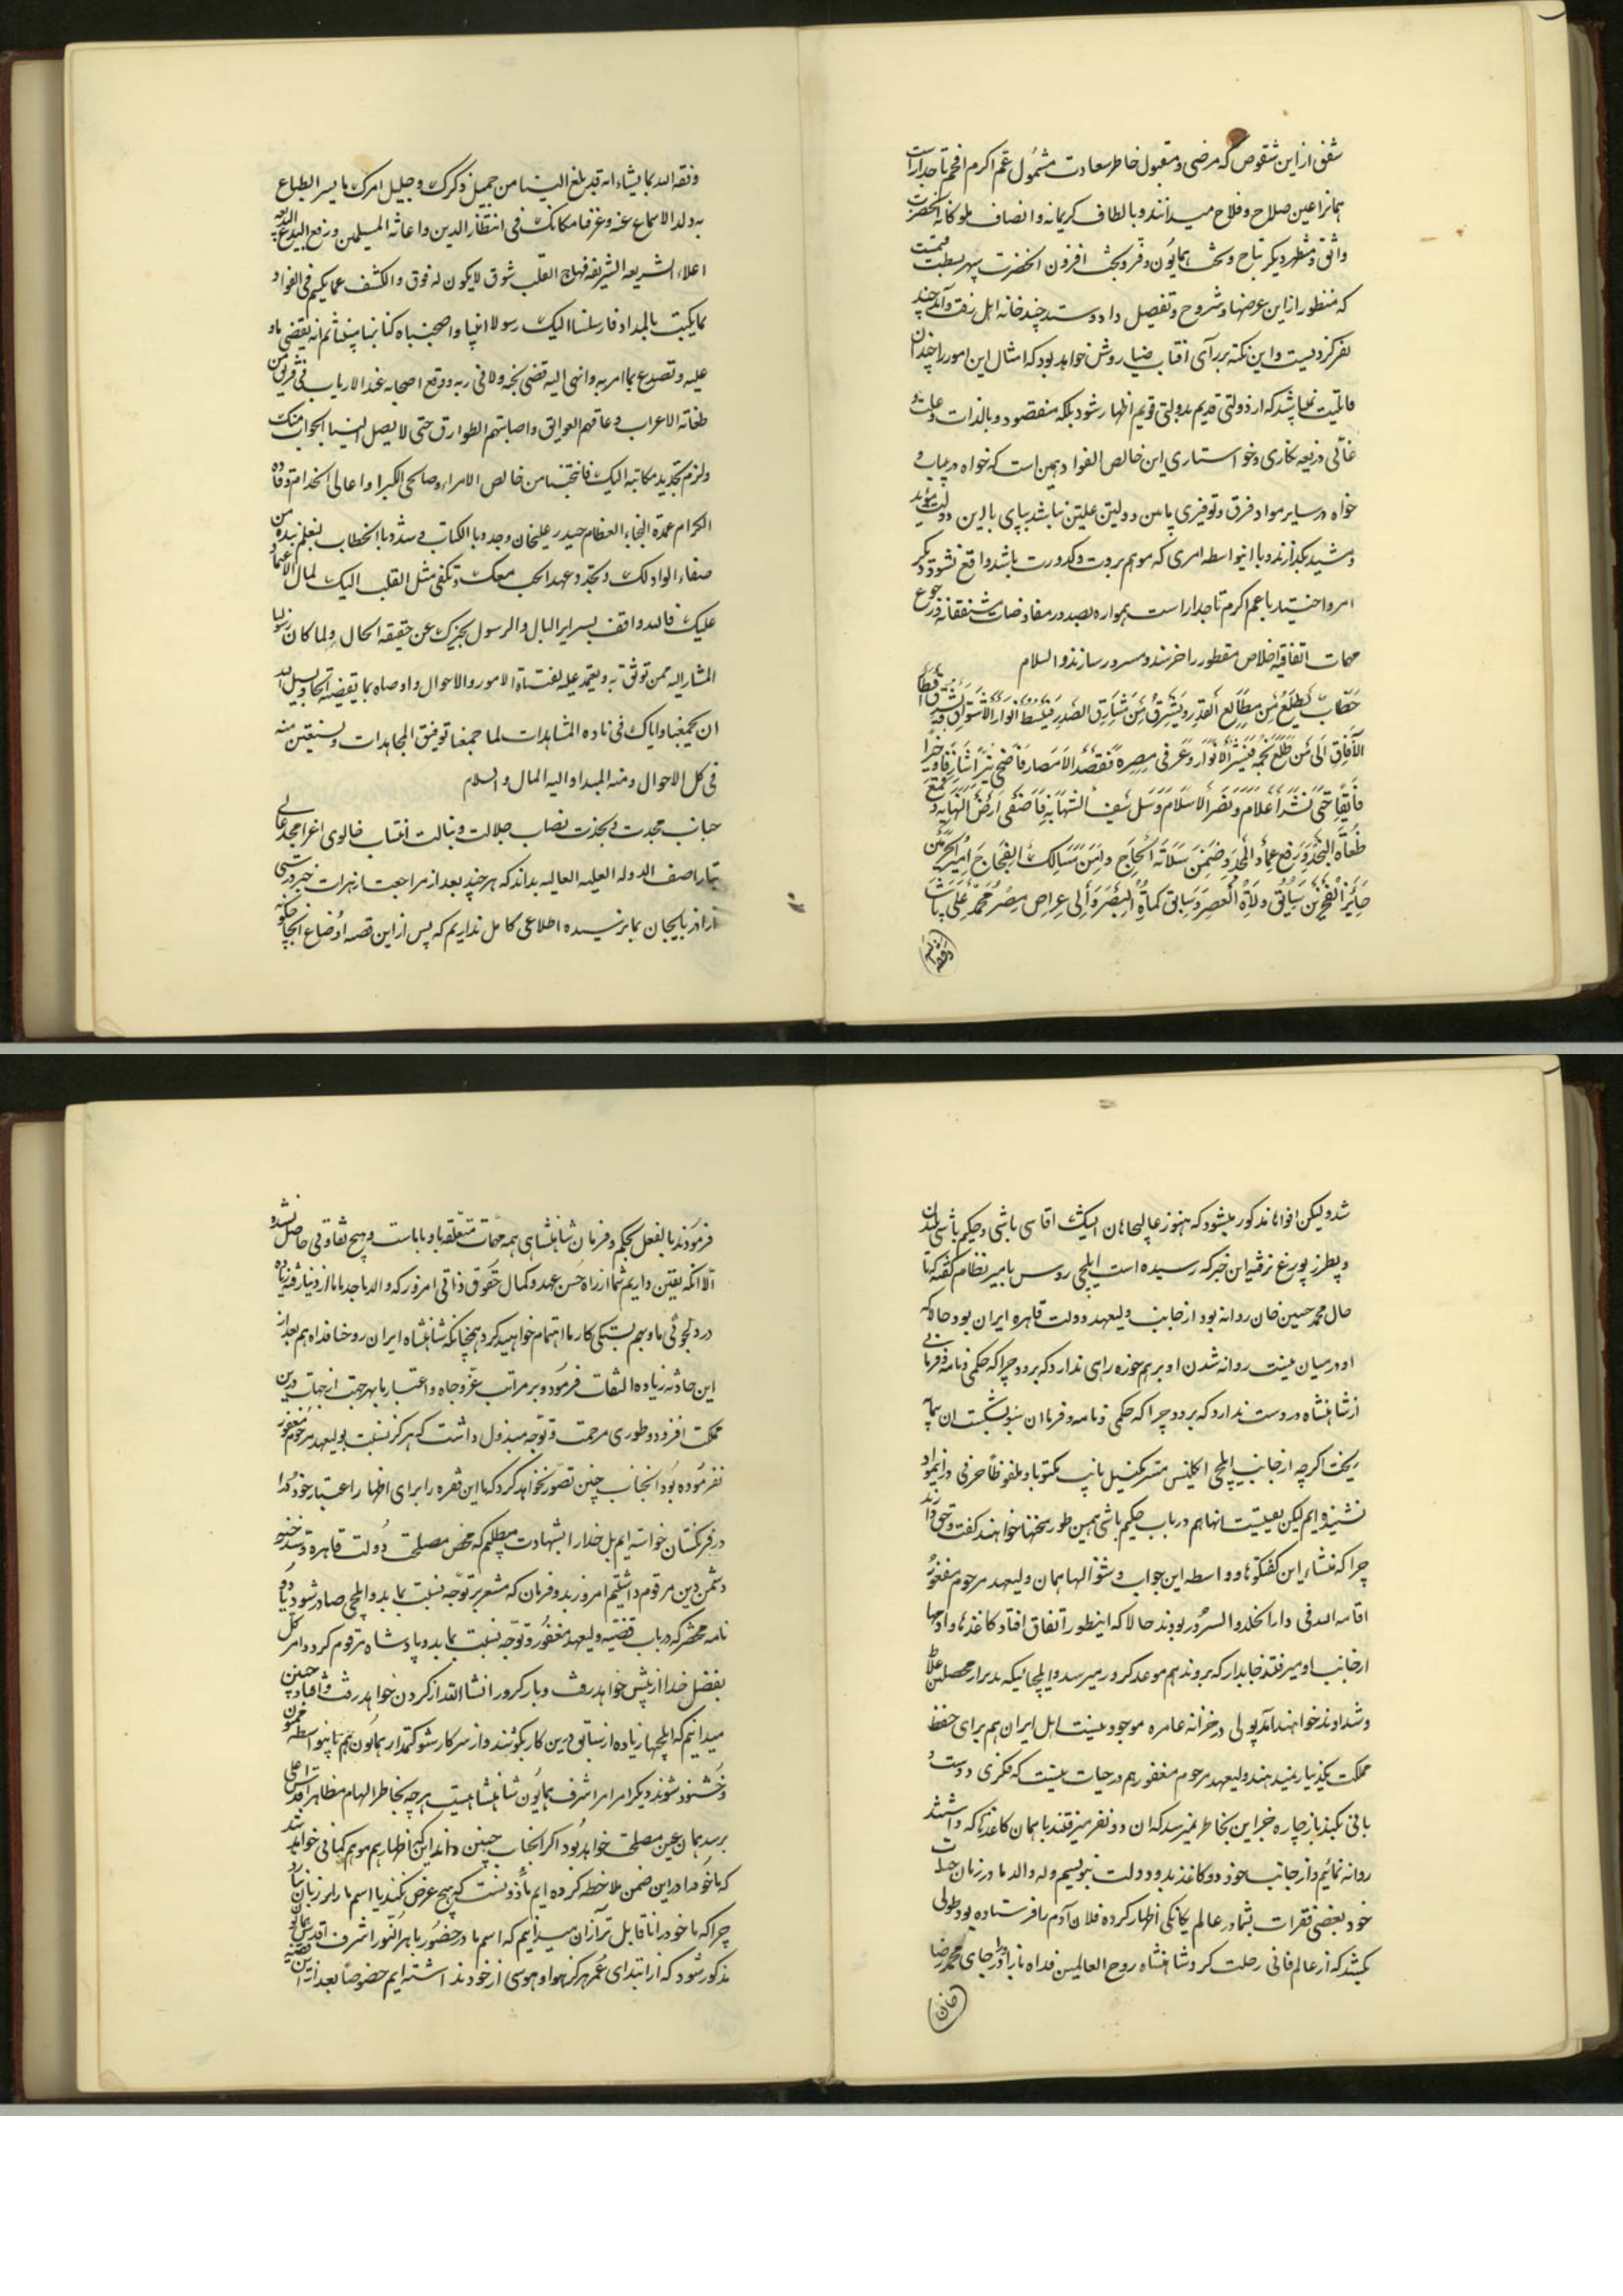 شفق از این شقوص که مرضی و مقبول خاطر سعادت مشمول عم اکرم افخم تاجدار است
همانرا عین صلاح و فلاح میدانند و بالطاف کریمانه و انصاف ملوکانه آنحضرت
واثق و مستظهر دیگر بتاج و تخت همایون و فر و بخت افزون آنحضرت سپهر بسطت
که منظور از این عرضها و شروح و تفصیل داد و ستد چند خانه ایل و رفت و آمد چند
نفر کرد نیست و این نکته بر رأی آفتاب ضیا روشن خواهد بود که امثال این امور را چندان
قابلیت نمیباشد که از دولتی قدیم بدولتی قویم اظهار شود بلکه مقصود بالذات و علت
غائی ذریعه نگاری و خواستاری این خالص الفواد همین است که خواه در این باب و
خواه در سایر مواد فرق و توفیری مابین دولتین علیتین نباشد بنای مابین دولت مؤید
و مشید بگذارند و باینواسطه امری که موهم برودت و کدورت باشد واقع نشود دیگر
امر و اختیار با عم اکرم تاجدار است همواره بصدور مفاوضات مشفقانه و رجوع
مهمات اتفاقیه اخلاص مقطور را خرسند و مسرور سازند والسلام
خطاب یطلع من مطالع القدر و یشرق من مشارق الصدر فیبسط انوار الاشواق فی
الآفاق الی من طلع نجمه فینشر الانوار و عمر فی مصره فقصد الامصار فاضحی نیرا شارقا و خیرا
فایقا حتی نشر اعلام و نصر الاسلام و سل سیف الشهابه فاصفی ارض التهامه و قمع
طغاة النجد و رفع عماد المجد و ضمن سلامة الحجاج و امن مسالک الفجاج امیر الحرمین
حایز الفخرین سابق ولاة العصر و سابق کماة البصر والی عراص مصر محمد علی پاشا
وفقه الله
وفقه الله بما یشاء انه قد بلغ الینا من جمیل ذکرک و جلیل امرک ما یسر الطباع
اعلاء الشریعه الشریفه فهاج القلب شوق لا یکون له فوق و الکشف عما یکتم فی الفواد
بما یکتب بالمداد فارسلنا الیک رسولا
علیه و تصدع بما امر به و انهی الیه قضی نحبه و لاقی ربه و وقع اصحابه
طغاة الاعراب و عاقهم العوایق و اصابتهم الطوارق حتی لا یصل الینا الجواب منک
و لزم تجدید مکاتبه الیک فانتخبنا من خالص الامراء و صالحی الکبرا و اعالی الخدام
الکرام عمدة النجباء العظام حیدر علیخان و جدد بالکتاب و شد بالخطاب لنعلم نبذه من
صفاء الوداد لک و تجدد عهد الحب معک و تکفی مثل القلب الیک لمال الاعتماد
علیک فالله واقف بسرایر البال و الرسول یخبرک عن حقیقه الحال و لما کان رسولنا
المشارالیه ممن توثق به و یعتمد علیه الامور و الاحوال و اوصاه بما یقتضیه
ان یجمعنا و ایاک فی نادة المشاهدات لما جمعنا توفیق المجاهدات و نستعین منه
فی کل الاحوال و منه المبدا و الیه المال والسلام
جناب مجدت و نجدت نصاب جلالت و نبالت انتساب خالوی اعز امجد عالی
تبار اصف الدوله العلیه العالیه بداند که هر چند بعد از مراجعت از هرات خبر درستی
از اذربایجان بما نرسیده اطلاعی کامل نداریم که پس از این قصه اوضاع انجا چگونه
شد و لیکن افواها مذکور میشود که هنوز عالیجاهان ایشک اقاسی باشی و حکیم باشی
و پطرزبورغ نرفته این خبر که رسیده است ایلچی روس با میر نظام گفته که تا
حال محمد حسین خان روانه بود از جانب ولیعهد دولت قاهره ایران بود حالا که
او در میان نیست روانه شدن او بر هم خورده رای ندارد که برود چرا که حکمی و نامه و فرمانی
از شاهنشاه در دست ندارد که برود چرا که حکمی و نامه و فرمان سبو بشکست آن پیمانه
ریخت اگرچه از جانب ایلچی انگلیس مستر کمبل یا نیب مکتوبا و ملفوظا حرفی در اینمواد
نشنیده ایم لیکن یقین است انها هم در باب حکیم باشی همین طور سخنها خواهند گفت و حق دارند
چرا که منشاء این گفتگوها و واسطه این جواب و سؤالها همان ولیعهد مرحوم مغفور
اقامه الله فی دار الخلد و السرور بودند حالا که اینطور اتفاق افتاد کاغذها و ادمها
از جانب او میرفتند جا بدار که بروند هم موعد کرور میرسد و ایلچیانیکه بدبر از محصلین غلاظ
و شداد وند خواهند امد پولی در خزانه عامره موجود نیست اهل ایران هم برای حفظ
مملکت یکدینار نمیدهند ولیعهد مرحوم مغفور هم در حیات نیست که فکری و دست و
پائی بکند باز چاره جز این بخاطر نمیرسد که ان دو نفر میرفتند با همان کاغذها که داشتند
روانه نمائیم و از جانب خود دو کاغذ بدو دولت بنویسیم و له والد ما در زمان حیات
خود بعضی فقرات بشما در عالم یگانگی اظهار کرده فلان آدم را فرستاده بود طولی
نکشید که از عالم فانی رحلت کرد شاهنشاه روح العالمین فداه ما را در جای محمد رضا
خان
فرمودند بالفعل بحکم و فرمان شاهنشاهی همه مهمات متعلقه باو باماست و هیچ تفاوتی حاصل نشده
الا انکه یقین داریم شما از راه حسن عهد و کمال حقوق ذاتی امروز که والد ماجد ما از دنیا رفته زیاده
در دلجوئی ما و سر بستگی کار ما اهتمام خواهید کرد همچنانکه شاهنشاه ایران روحنا فداه هم بعد از
این حادثه زیاده التفات فرمود و بر مراتب عز و جاه و اعتبار ما بهر جهت از جهات در این
مملکت افزود و طوری مرحمت و توجه مبذول داشت که هرگز نسبت بولیعهد مرحوم مغفور
نفرموده بود انجناب چنین تصور نخواهد کرد که ما این فقره را برای اظهار اعتبار خود
در فرنگستان خواسته ایم بل خدا را بشهادت میطلبیم که محض مصلحت دولت قاهره
دشمن دین مرقوم داشتیم امروز بد و فرمان که مشعر بر توجه نسبت بما بدو ایلچی صادر شود یا دو
نامه مختصر که در باب قضیه ولیعهد مغفور و توجه نسبت بما بدو پادشاه مرقوم گردد امر کل
بفضل خدا از پیش خواهد رفت و بار کرور انشا الله از گردن خواهد رفت و افتاد چنین
میدانیم که ایلچیها زیاده از سابق در این کار بکوشند و از سرکار شوکتمدار همایون هم باینواسطه ممنون
و خشنود شوند دیگر امر امر اشرف همایون شاهنشاهیست هرچه بخاطر الهام مظاهر اقدس اعلی
برسد همان عین مصلحت خواهد بود اگر انجناب چنین داند این که اظهار هم موهم گمانی خواهد شد
که ما خود را در این ضمن ملاحظه کرده ایم ماذون نیست که هیچ عرض بکند یا اسم ما را بر زبان بیارد
چرا که ما خود را ناقابل تر از ان میدانیم که اسم ما در حضور باهر النور اشرف اقدس همایون
مذکور شود که از ابتدای عمر هرگز هوا و هوسی از خود نداشته ایم خصوصا بعد از این قضیه